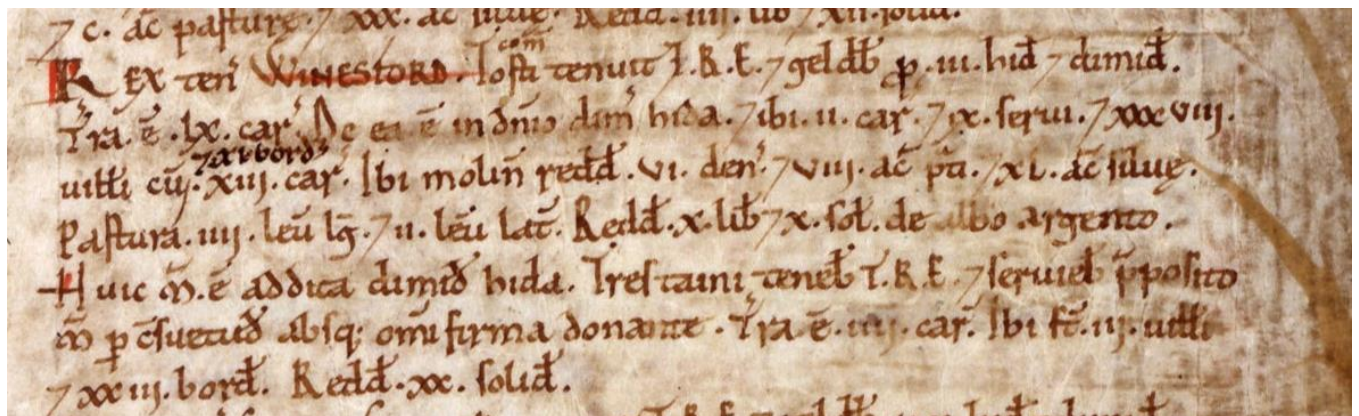 ⁊ c. ac̄ pasturę. ⁊ xxx. ac̄ siluę. Redd. iiii. lib̄ ⁊ xii. solid.
REX ten̄ WINESFORD. Tosti com̄ tenuit T.R.E. ⁊ geldb̄ ꝓ .iii. hid̄ ⁊ dimid̄.
Tra. ē .lx. car̄. De ea ē in dn̄io dim̄ hida. ⁊ ibi .ii. car̄. ⁊ ix. serui. ⁊ xxxviii.
uilli cū ⁊ xi bord̄ xiii. car̄. Ibi molin̄ redd̄ .vi. den̄. ⁊ viii. ac̄ p̄ti. ⁊ xl. ac̄ siluę.
Pastura. iiii. leū lḡ. ⁊ ii. leū lat̄. Redd̄ .x. lib̄ ⁊ x. sol̄. de albo argento.
Huic m̄. ē addita dimid̄ hida. Tres taini teneb̄ T.R.E. ⁊ seruieb̄ p̄posito
m̄ ꝑ c̄suetud̄ absq; om̄i firma donante. Tra ē. iiii. car̄. Ibi st̄. iii. uilli
⁊ xxiii. bord̄. Redd̄ .xx. solid̄.